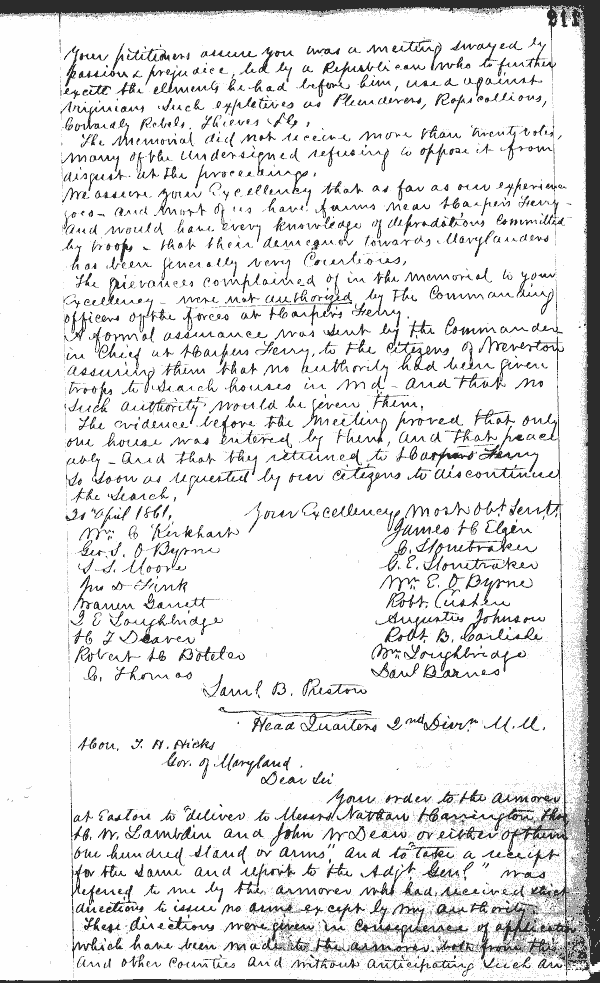 911
Your petitioners assure you was a meeting swayed by
passion & prejudice, led by a Republican who to further
excite the elements he had before him, used against
Virginians such expletives as Plunderers, Rapscallions,
Cowardly Rebels, Thieves &c.
The memorial did not receive more than twenty votes,
many of the undersigned refusing to oppose it from
disgust at the proceedings.
We assure your Excellency that as far as our experience
goes - and most of us have farms near Harpers Ferry -
and would have every knowledge of depradations committed
by troops - that their demeanor towards Marylanders
has been generally very Courteous.
The grievances complained of in the memorial to your
Excellency - were not authorized by the Commanding
officers of the forces at Harper's Ferry.
A formal assurance was sent by the Commander
in Chief at Harpers Ferry, to the citizens of Weverton
assuring them that no authority had been given
troops to search houses in Md - and that no
such authority would be given them.
The evidence before the meeting proved that only
one house was entered by them, and that peace
ably - And that they returned to Harpers Ferry
so soon as requested by our citizens to discontinue
the search.
Your Excellency's most obt. servts.
April 1861.
Wm. C Kirkhart
James H Elgin
Geo. S. O'Byrne
C. Stonebraker
S S. Moore
G. E. Stonebraker
Jno D Fink
Wm. E. O'Byrne
Warren Garrott
Robt. Custen
J E Loughbridge
Augustus Johnson
H T Deaver
Robt B. Carlisle
Robert H Boteler
Wm. Loughbridge
C. Thomas
Danl Barnes
Saml B. Preston
Head Quarters 2nd Divn M. M.
Hon. T. H. Hicks
Gov. of Maryland.
Dear Sir
Your order to the armorer
at Easton to "deliver to Messrs Nathan Harrington, Thos
H. W. Lambdin and John W Dean or either of them
one hundred stand or arms", and to "take a receipt
for the same and report to the Adjt Genl" was
referred to me by the armorer who had received strict
directions to issue no arms except by my authority.
These directions were given in consequence of application
which have been made to the armorer both from this
and other counties and without anticipating such an